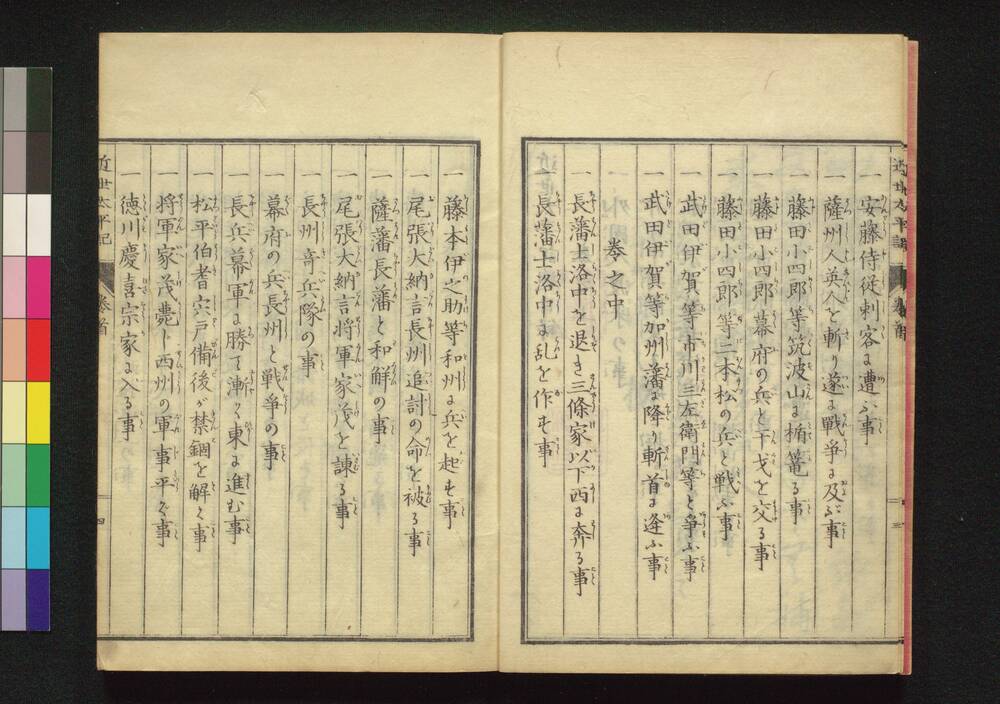 近世太平記 巻首 三
一 安藤侍従刺客に遭ふ事
一 薩州人英人を斬り遂に戦争に及ぶ事
一 藤田小四郎等筑波山に楯篭る事
一 藤田小四郎幕府の兵と干戈を交る事
一 藤田小四郎等二本松の兵と戦ふ事
一 武田伊賀等市川三左衛門等と争ふ事
一 武田伊賀等加州藩に降り斬首に逢ふ事
巻之中
一 長藩士洛中を退き三條家以下西に奔る事
一 長藩士洛中に乱を作す事
一 藤本伊之助等和州に兵を起す事
一 尾張大納言長州追討の命を被る事
一 薩藩長藩と和解の事
一 尾張大納言将軍家茂を諌る事
一 長州奇兵隊の事
一 幕府の兵長州と戦争の事
一 長兵幕軍に勝て漸く東に進む事
一 松平伯耆宍戸備後が禁錮を解く事
一 将軍家茂薨じ西州の軍事平ぐ事
一 徳川慶喜宗家に入る事
近世太平記 巻首 四